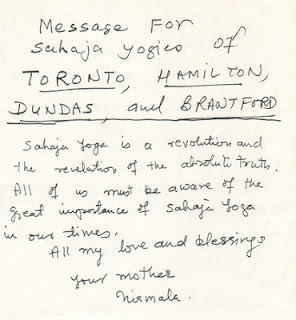 Message For
Sahaja Yogies of
TORONTO, HAMILTON,
DUNDAS, and BRANTFORD
Sahaja Yoga is a revolution and
the revelation of the absolute truth.
All of us must be aware of the
great importance of Sahaja Yoga
in our times.
All my love and blessings
Your mother
Nirmala.